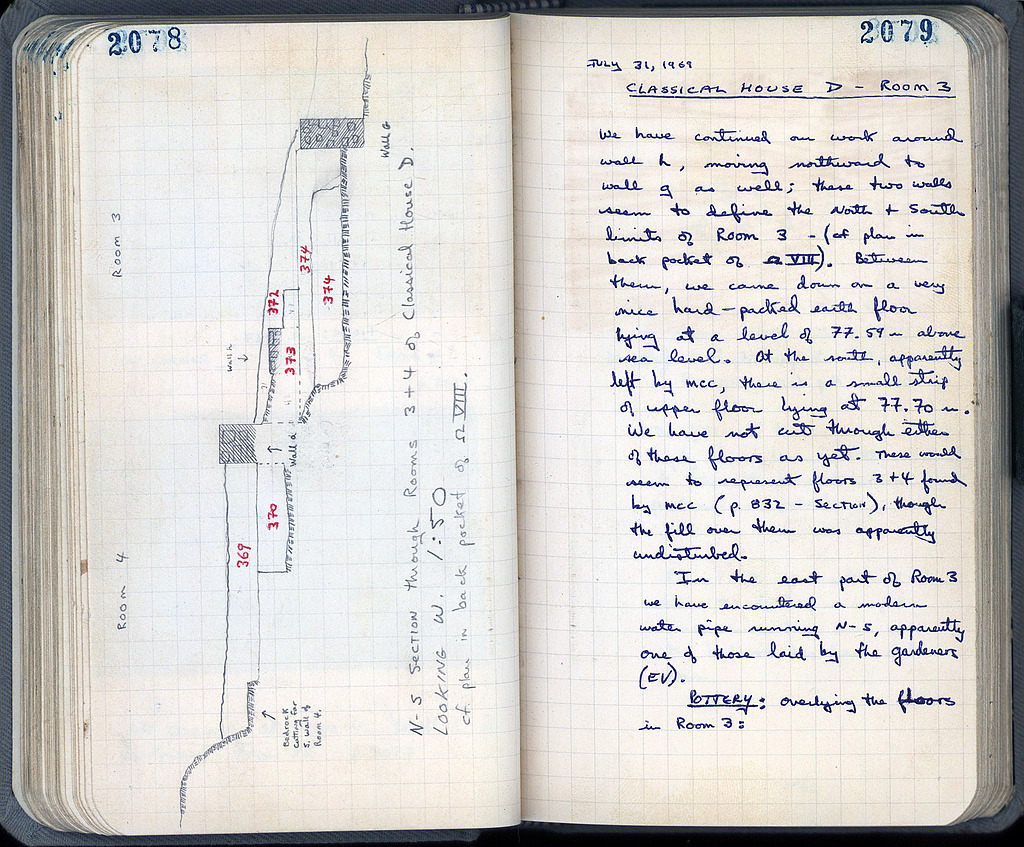 2078
ROOM 4
ROOM 3
Wall h
Wall G
Wall d
369
370
373
372
374
374
Bedrock
cutting for
S. Wall of
Room 4.
N-S SECTION through Rooms 3 + 4 of Classical House D.
LOOKING W. 1:50
cf. plan in back pocket of Ω VIII.
2079
JULY 31, 1969
CLASSICAL HOUSE D - ROOM 3
We have continued our work around
wall h, moving northward to
wall g as well; these two walls
seem to define the North + South
limits of Room 3 - (cf plan in
back pocket of Ω VIII). Between
them, we came down on a very
nice hard-packed earth floor
lying at a level of 77.59 m above
sea level. At the south, apparently
left by MCC, there is a small strip
of upper floor lying at 77.70 m.
We have not cut through either
of these floors as yet. These would
seem to represent floors 3+4 found
by MCC (p. 832 - SECTION), though
the fill over them was apparently
undisturbed.
In the east part of Room 3
we have encountered a modern
water pipe running N-S, apparently
one of those laid by the gardeners
(EV).
POTTERY: overlying the floors
in Room 3: